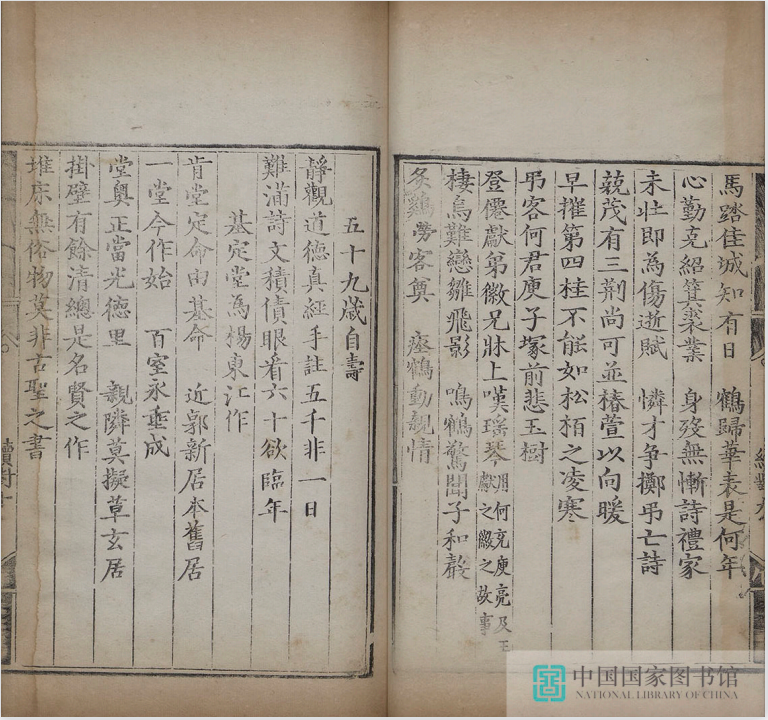 馬踏佳城知有日　鶴歸華表是何年
心勤克紹箕裘業　身殁無慚詩禮家
未壯即為傷逝賦　憐才争擲弔亡詩
兢茂有三荆尚可並椿萱以向暖
早摧第四桂不能如松栢之凌寒
弔客何君庾子塚前悲玉樹
登僊獻弟徽兄牀上嘆瑶琴用何充庾亮及王獻之徽之故事
棲烏難戀雛飛影　鳴鶴驚聞子和聲
炙鷄勞客奠　瘞鶴動親情
五十九歲自壽
靜觀道德真經手註五千非一日
難滿詩文積債眼看六十欲臨年
基定堂為楊東江作
肯堂定命由基命　近郭新居本舊居
一堂今作始　百室永垂成
堂奥正當光德里　親隣莫擬草玄居
掛壁有餘清總是名賢之作
堆床無俗物莫非古聖之書
中国国家图书馆
NATIONAL LIBRARY OF CHINA